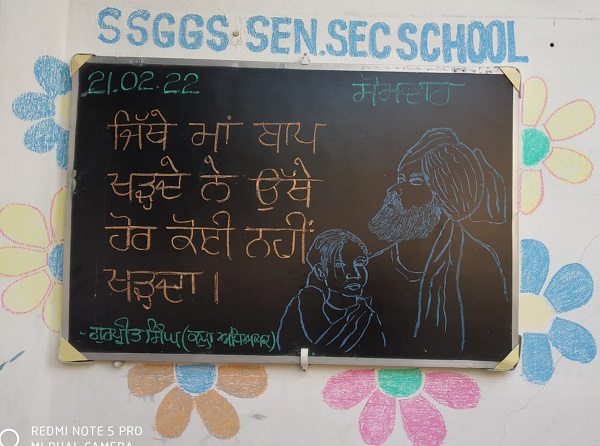 SSGGS SEN.SEC SCHOOL
21.02.22 ਸੋਮਵਾਰ
ਜਿੱਥੇ ਮਾਂ ਬਾਪ
ਖੜ੍ਹਦੇ ਨੇ ਉੱਥੇ
ਹੋਰ ਕੋਈ ਨਹੀਂ
ਖੜ੍ਹਦਾ।
- ਗੁਰਪ੍ਰੀਤ ਸਿੰਘ (ਕਲਾ ਅਧਿਆਪਕ)
REDMI NOTE 5 PRO
MI DUAL CAMERA